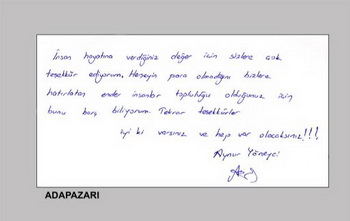 İnsan hayatına verdiğiniz değer için sizlere çok
teşekkür ediyorum. Herşeyin para olmadığını bizlere
hatırlatan ender insanlar topluluğu olduğunuz için
bunu borç biliyorum. Tekrar teşekkürler
iyi ki varsınız ve hep var olacaksınız!!!
Aynur Yöneyci
ADAPAZARI